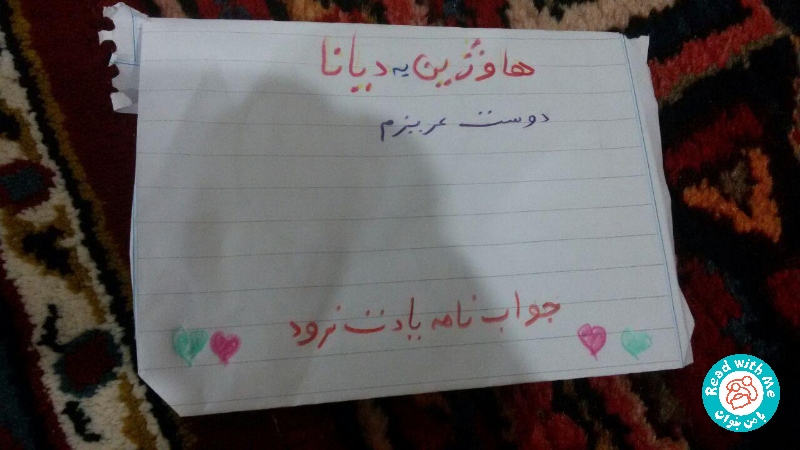 هاوژین به دیانا
دوست عزیزم
جواب نامه یادت نرود
Read with Me
با من بخوان